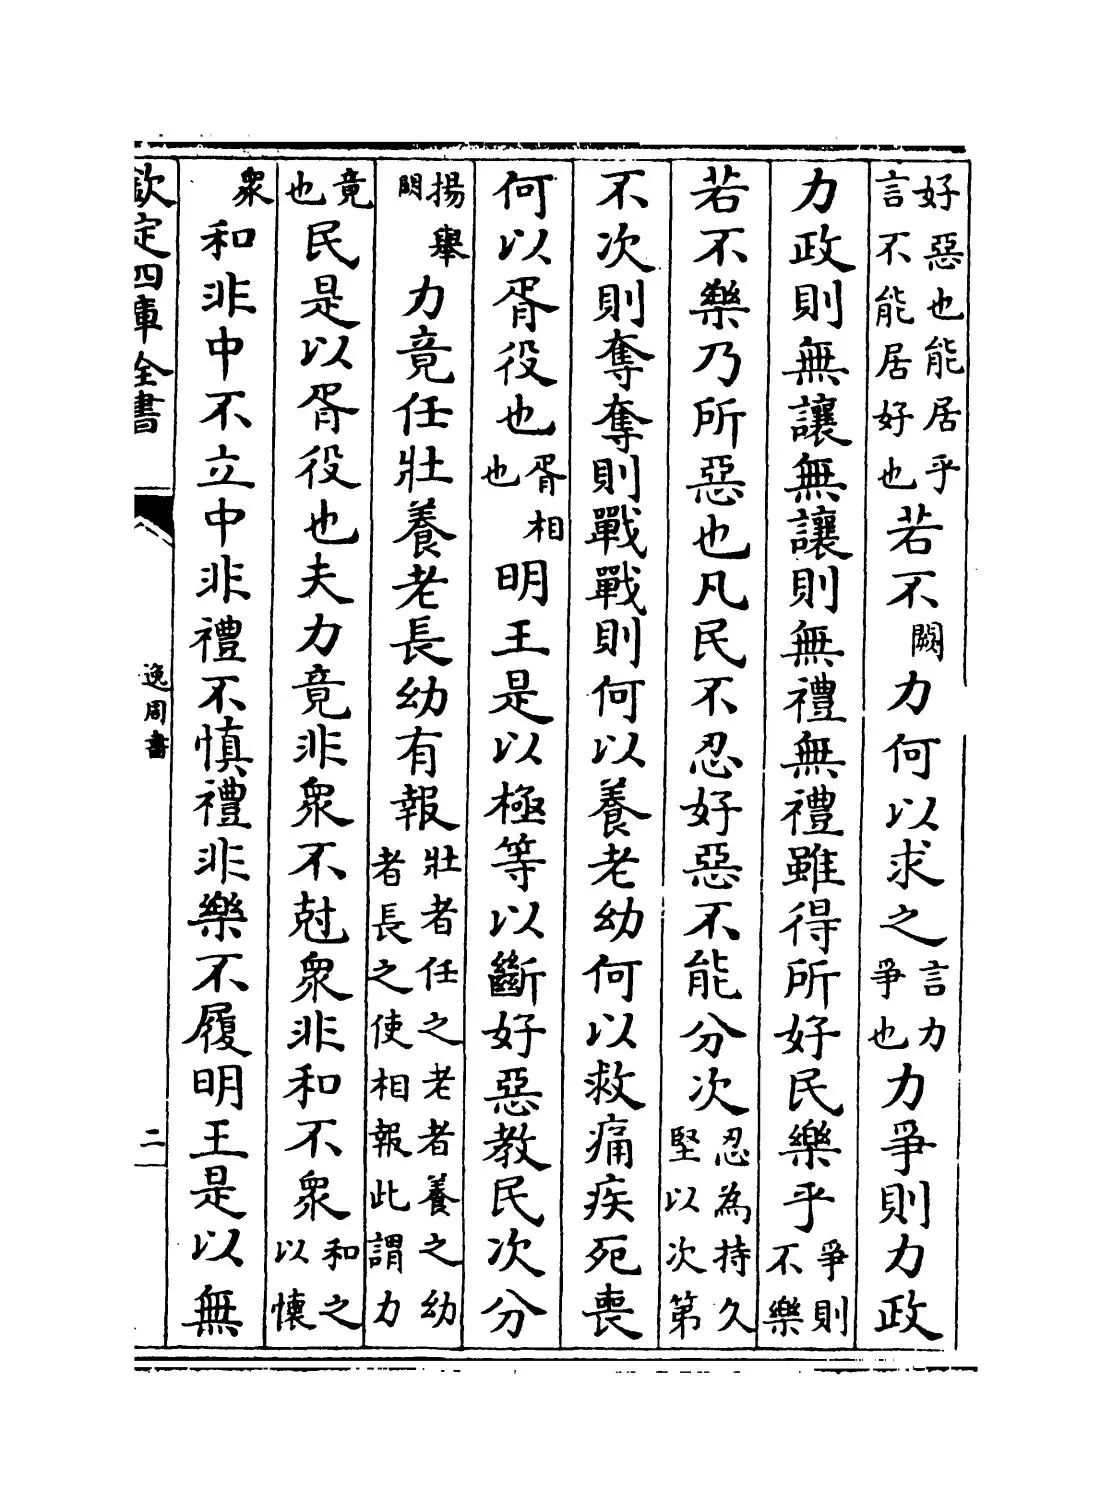 好惡也能居乎言不能居好也若不闕力何以求之言力爭也力爭則力政
力政則無讓無讓則無禮無禮雖得所好民樂乎爭則不樂
若不樂乃所惡也凡民不忍好惡不能分次忍為持久堅以次第
不次則奪奪則戰戰則何以養老幼何以救痛疾死喪
何以胥役也胥相也明王是以極等以斷好惡教民次分
揚舉力竟任壯養老長幼有報壯者任之老者養之幼者長之使相報此謂力
竟也民是以胥役也夫力竟非衆不尅衆非和不衆和之以懐
衆和非中不立中非禮不慎禮非樂不履明王是以無
欽定四庫全書
逸周書
二